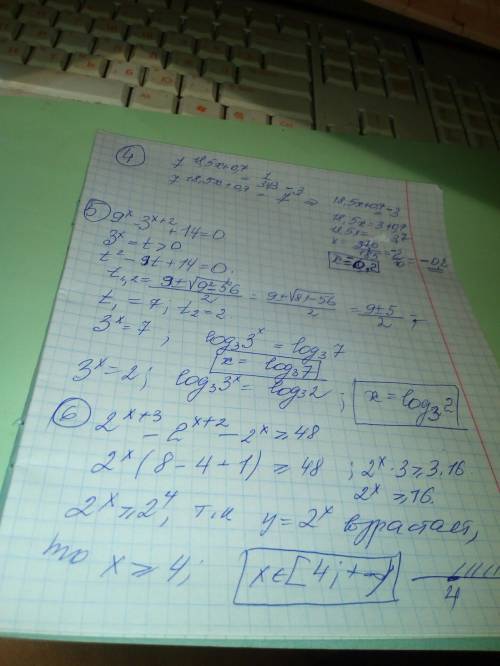 ④ 7^18,5x+0,7 = 1/343
18,5x+0,7=-3
x=0,2
⑤ 9^x - 3^x+2 + 14=0
3^x = t > 0
t² - 9t + 14 = 0.
t1,2 = 9±√9²-56 / 2 = 9±√81-56 / 2 = 9±5 / 2 =
t1 = 7; t2 = 2
3^x = 7; log3 3^x = log3 7
x = log3 7
3^x = 2; log3 3^x = log3 2; x = log3 2
⑥ 2^x+3 - 2^x+2 - 2^x ≥ 48
2^x (8-4+1) ≥ 48; 2^x · 3 ≥ 3·16
2^x ≥ 16.
2^x ≥ 2^4, т.к y = 2^x возрастает,
то x ≥ 4; x∈[4;+∞)
4